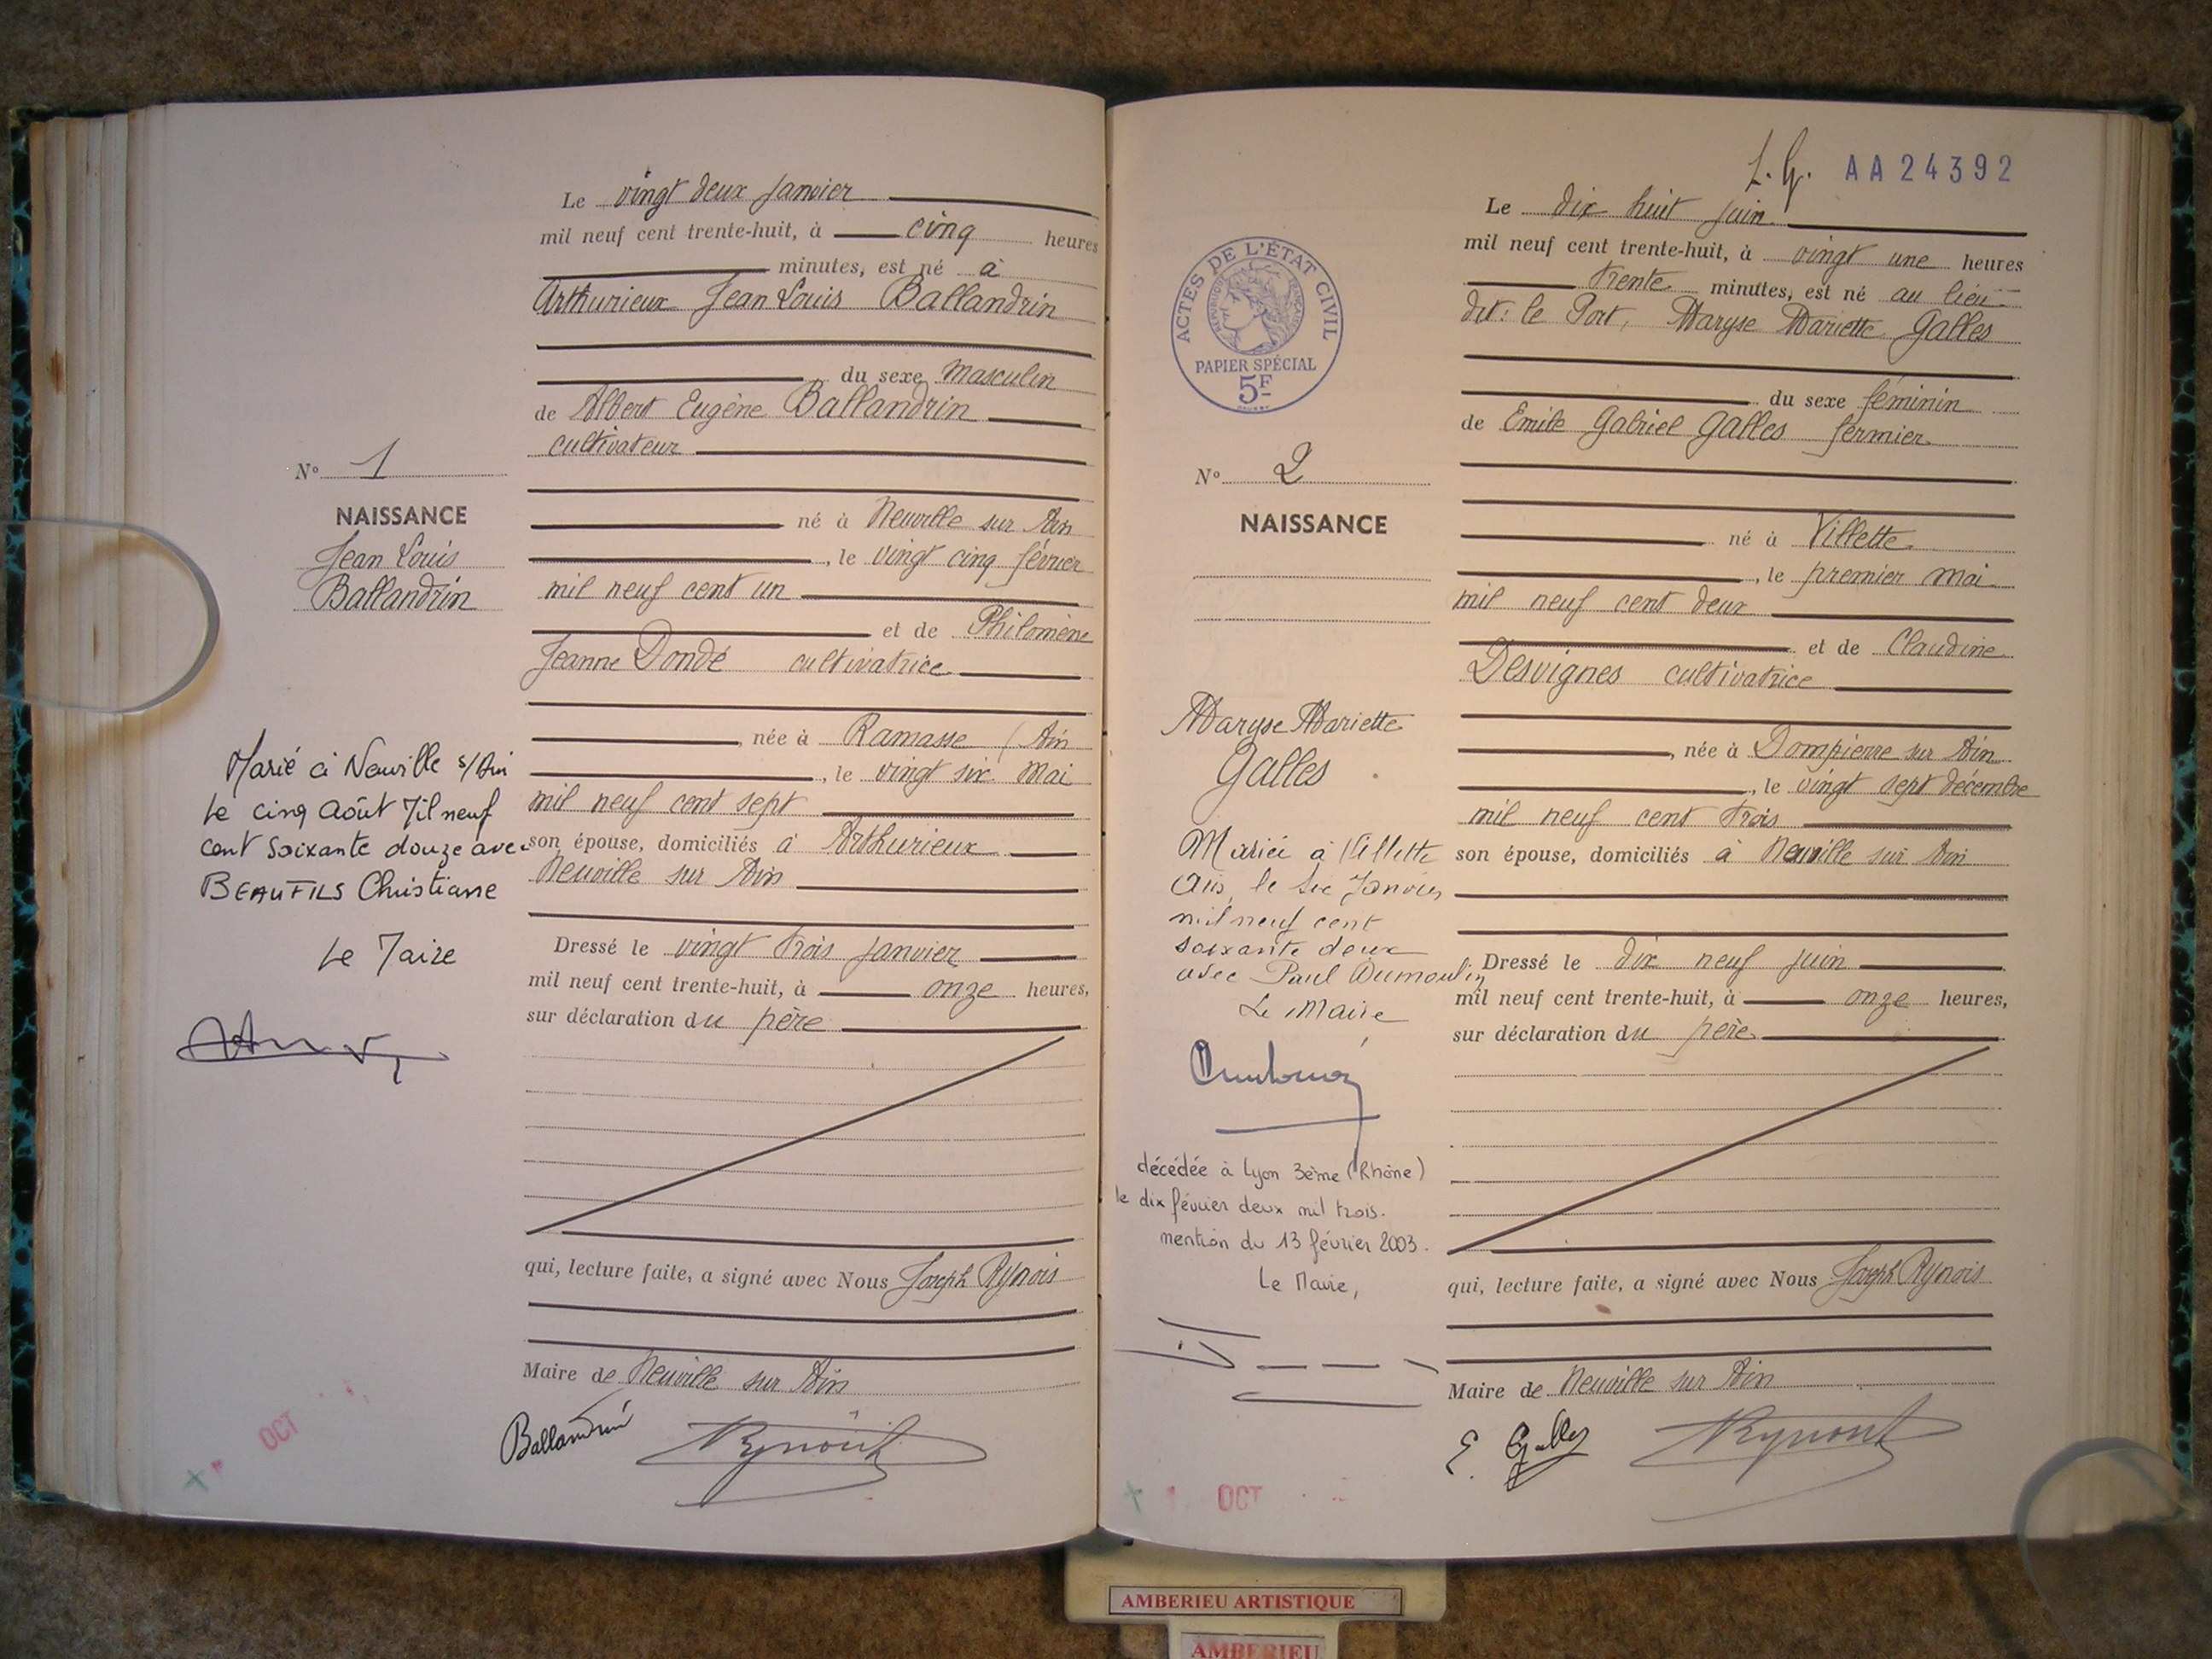 Le vingt deux janvier
mil neuf cent trente-huit, à cinq heures
minutes, est né à
Arthurieux Jean Louis Ballandrin
du sexe masculin
de Albert Eugène Ballandrin
cultivateur
N° 1
NAISSANCE
Jean Louis
Ballandrin
né à Neuville sur Ain
, le vingt cinq février
mil neuf cent un
et de Philomène
Jeanne Dondé cultivatrice
née à Ramasse (Ain
, le vingt six mai
mil neuf cent sept
son épouse, domiciliés à Arthurieux
Neuville sur Ain
Marié à Neuville s/Ain
le cinq août Mil neuf
cent soixante douze avec
BEAUFILS Christiane
Le Maire
Dressé le vingt trois janvier
mil neuf cent trente-huit, à onze heures,
sur déclaration du père
qui, lecture faite, a signé avec Nous Joseph Rynois
Maire de Neuville sur Ain
Ballandrin
OCT
L.G. AA24392
Le dix huit juin
mil neuf cent trente-huit, à vingt une heures
trente minutes, est né au lieu-
dit: le Port, Maryse Mariette Galles
du sexe féminin
de Emile Gabriel Galles fermier
ACTES DE L'ÉTAT CIVIL
RÉPUBLIQUE FRANÇAISE
PAPIER SPÉCIAL
5F
N° 2
NAISSANCE
né à Villette
, le premier mai
mil neuf cent deux
et de Claudine
Desvignes cultivatrice
, née à Dompierre sur Ain
, le vingt sept décembre
mil neuf cent trois
son épouse, domiciliés à Neuville sur Ain
Maryse Mariette
Galles
Mariée à Villette
Ain, le six Janvier
mil neuf cent
soixante deux
avec Paul Dumoulin
Le Maire
Dressé le dix neuf juin
mil neuf cent trente-huit, à onze heures,
sur déclaration du père
décédée à Lyon 3ème (Rhône)
le dix février deux mil trois.
mention du 13 février 2003.
Le Maire,
qui, lecture faite, a signé avec Nous Joseph Rynois
Maire de Neuville sur Ain
E. Galles
OCT
AMBERIEU ARTISTIQUE
AMBERIEU